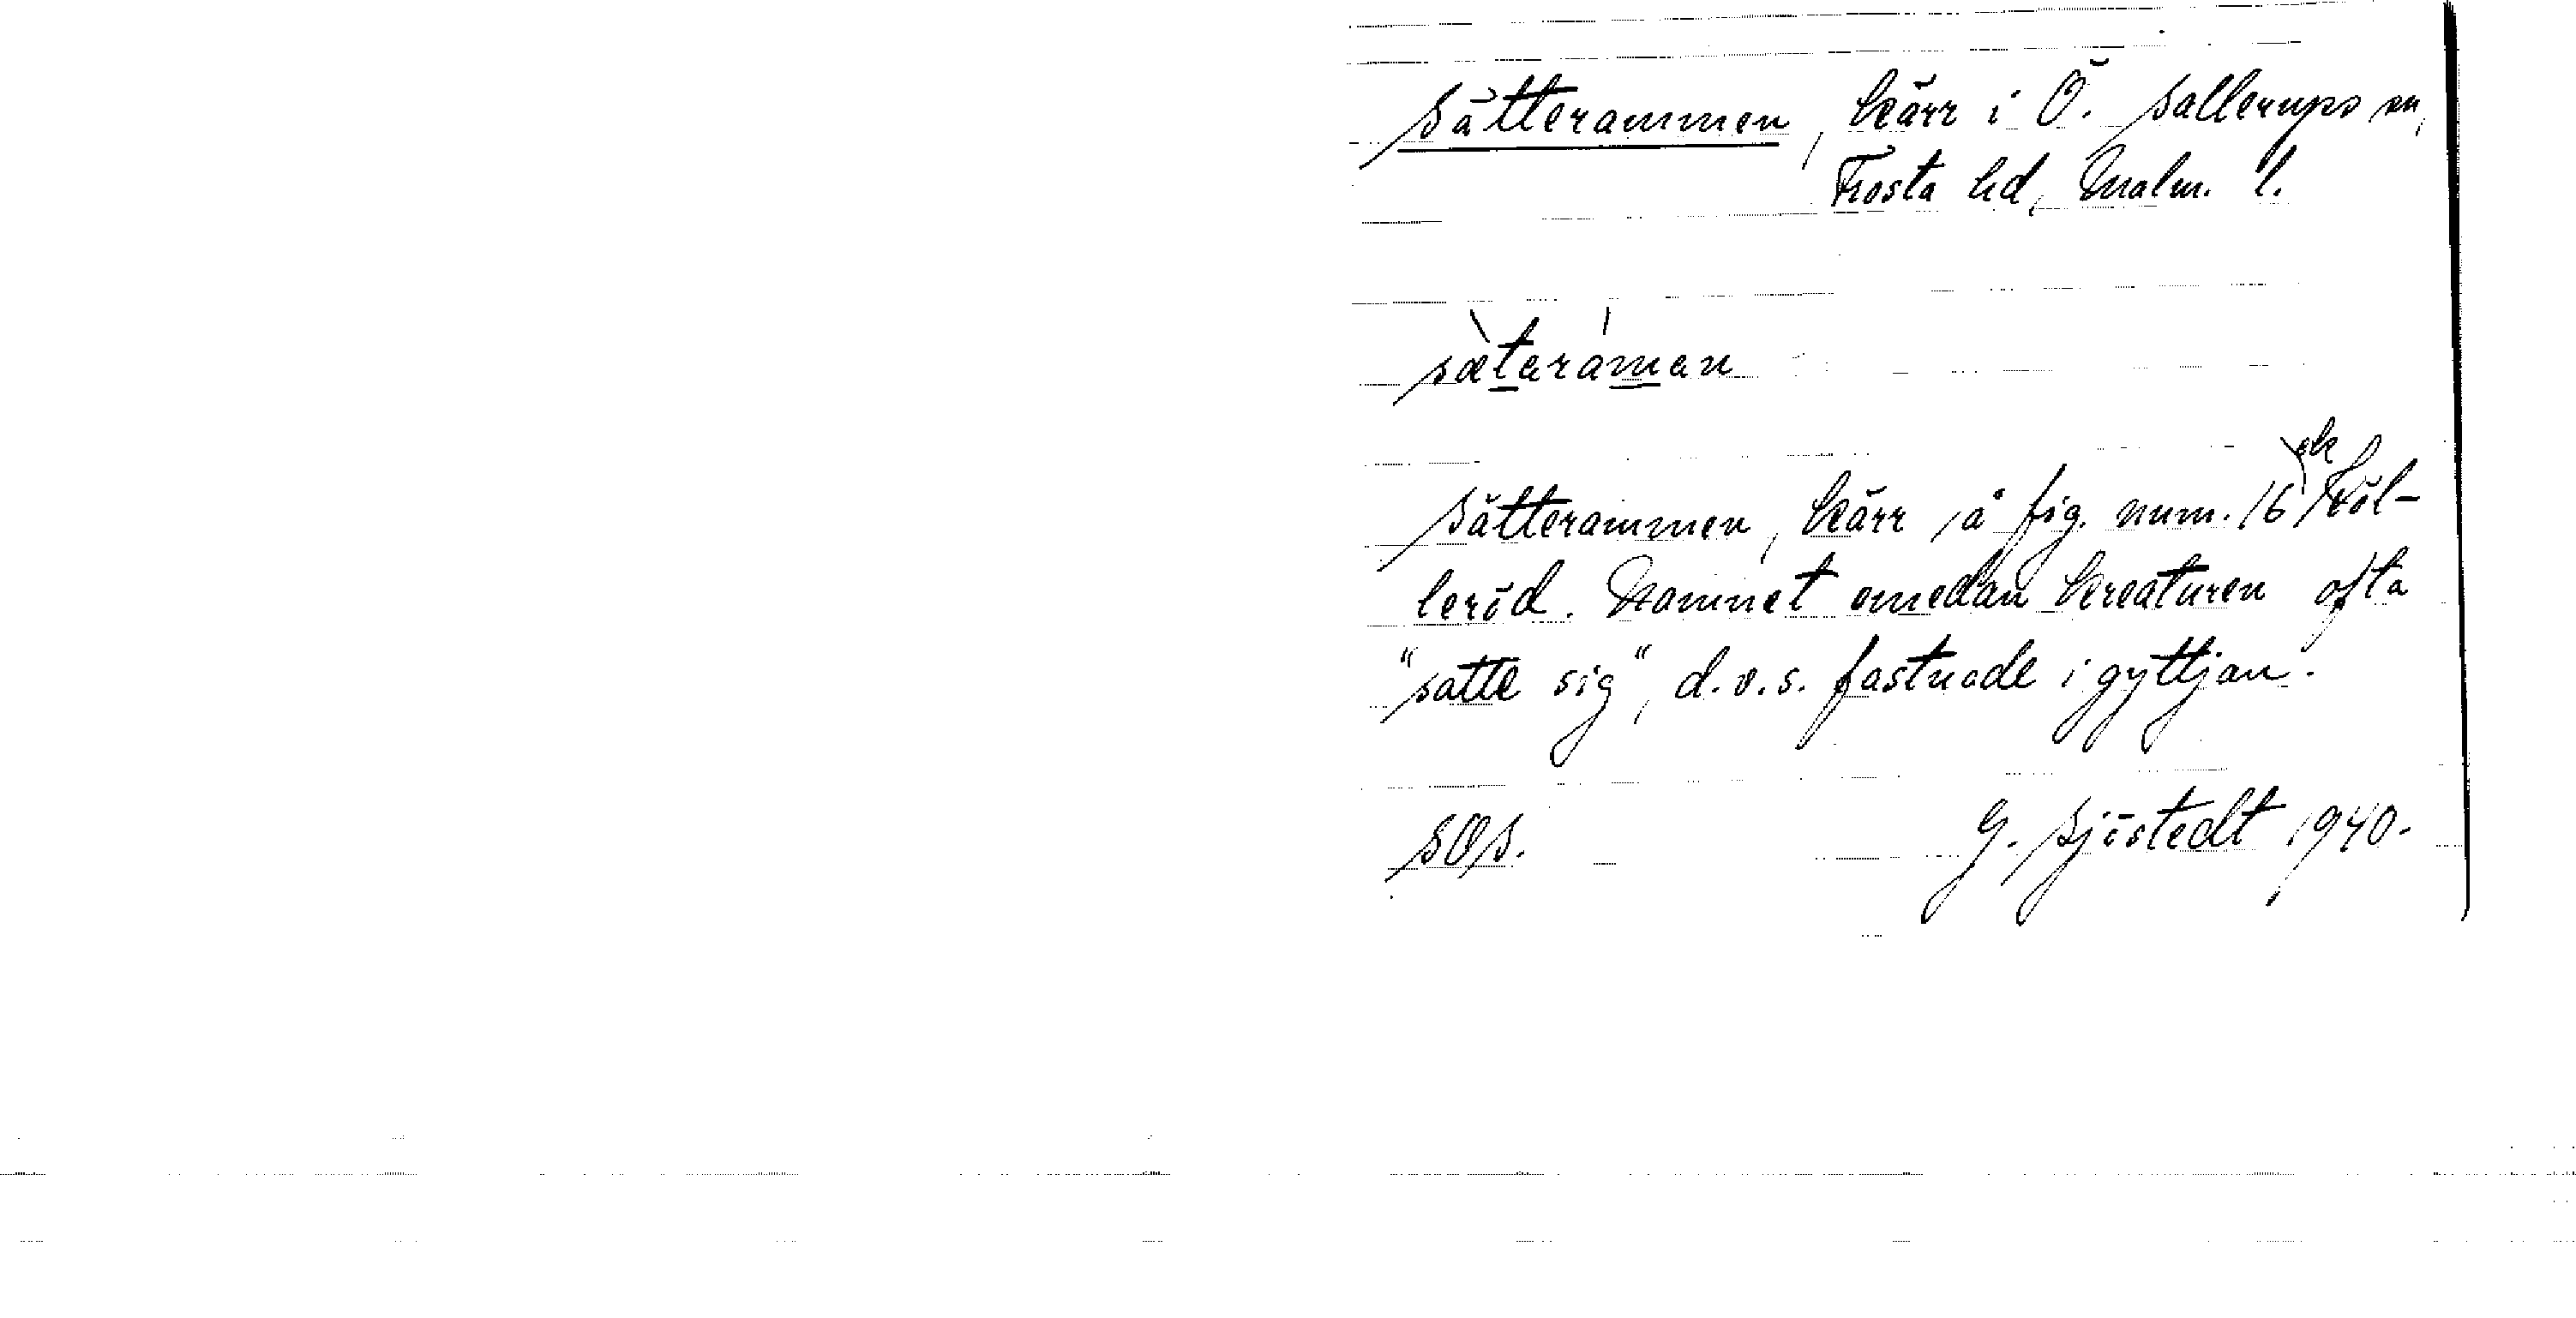 Sätterammen, kärr i Ö. Sallerups sn,
Frosta hd, Malm. l.
sætaraman
Sätterammen, kärr å fig. num. 16 sk
Föl-
leröd. Namnet emedan kreaturen ofta
"satte sig", d.v.s. fastnade i gyttjan.
SOS. G. Sjöstedt 1940.